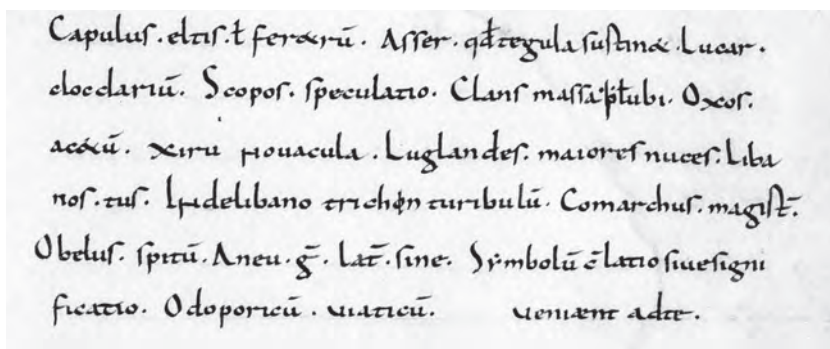 Capulus. eltis. ł feraxrū. Asser. qđtegula sustinæ. Lucar.
clocclariū. Scopos. speculatio. Clans massa. ubi. Oxos.
acætū. xiru novacula. Luglandes. maiores nuces. Liba
nos. tus. delibano turibulū. Comarchus. magist̄.
Obelus. spitū. Aneu. ḡ. Lat̄. sine. Symbolū c̄latio sivesigni
ficatio. Odoporicū. viaticū. veniænt adte.